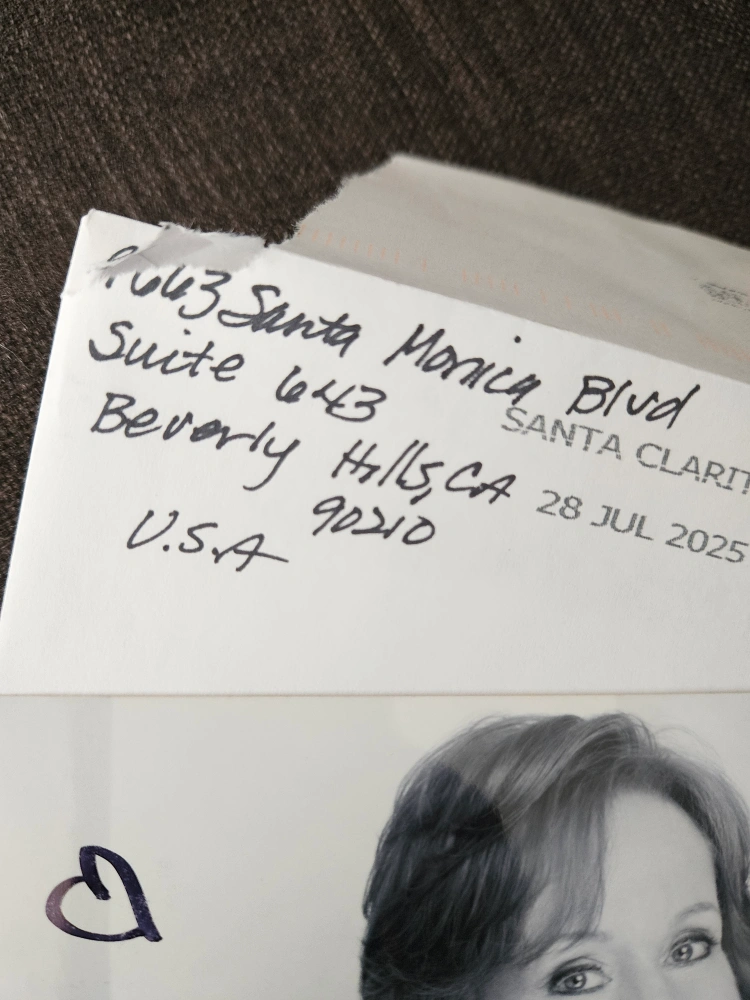 9663 Santa Monica Blvd
Suite 643
Beverly Hills, CA
90210
U.S.A
SANTA CLARIT
28 JUL 2025